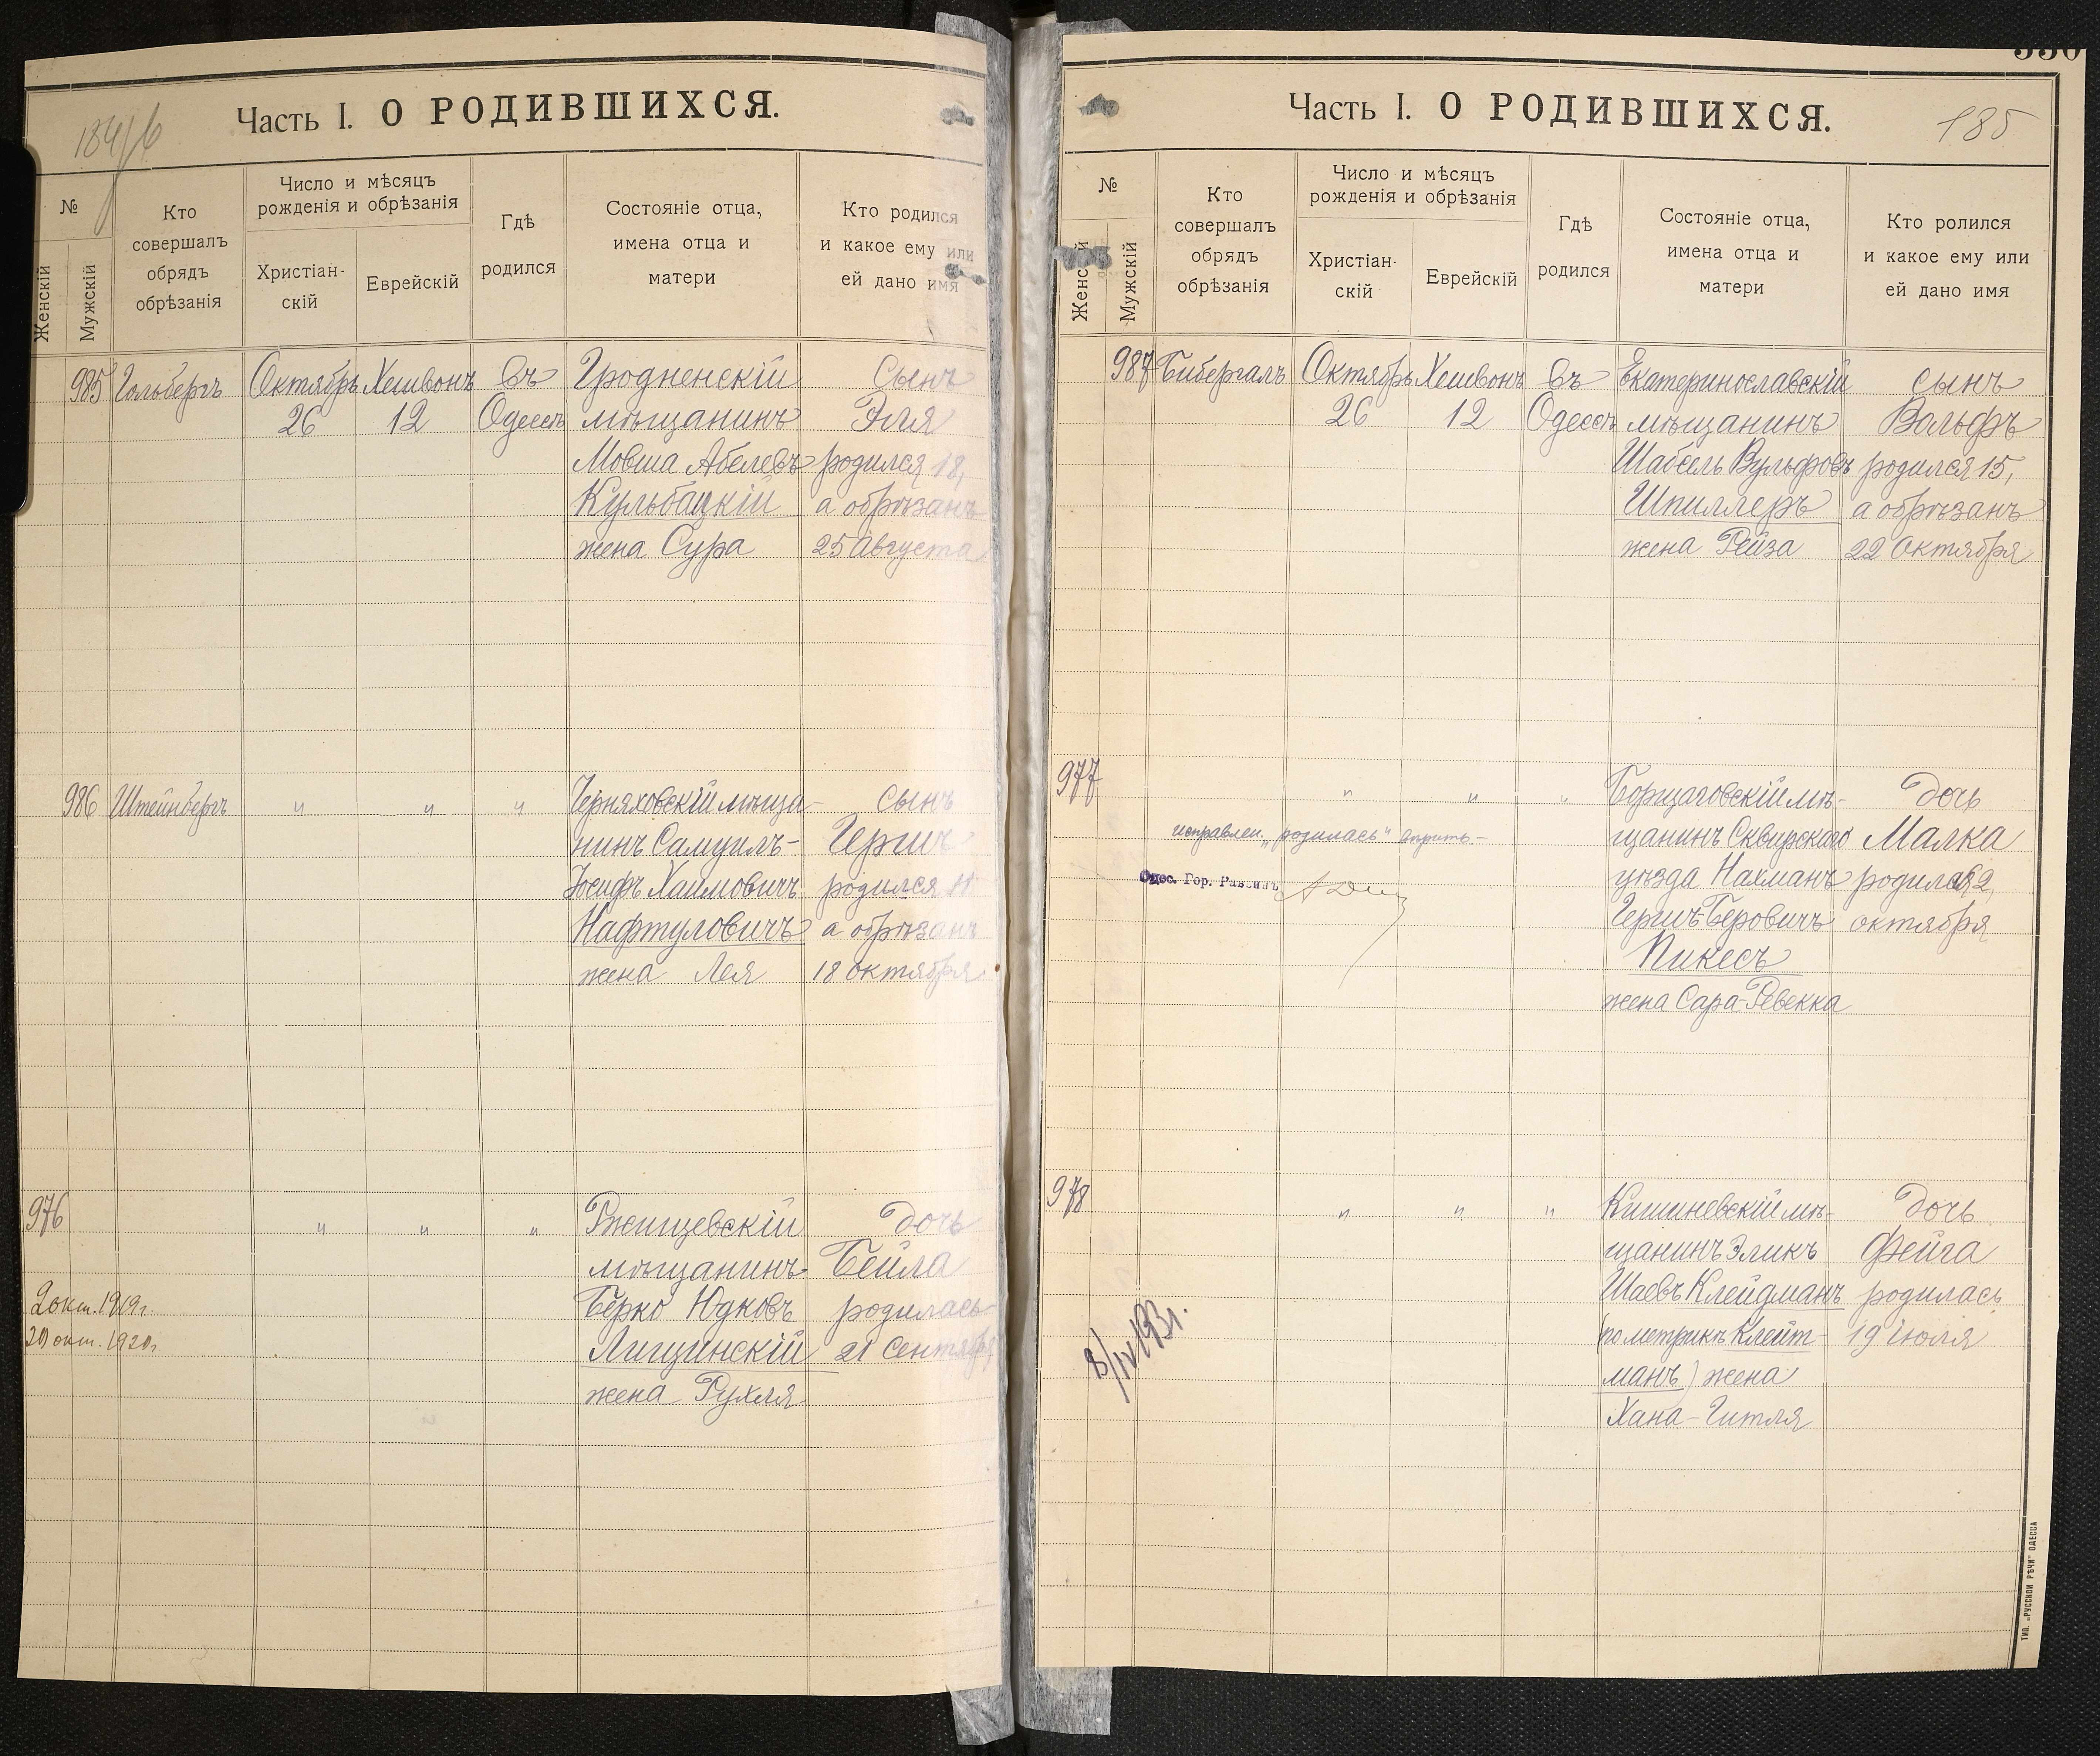 Часть I. О РОДИВШИХСЯ.
184/б
№
Женскій
Мужскій
Кто совершалъ обрядъ обрѣзанія
Число и мѣсяцъ рожденія и обрѣзанія
Христіан-скій
Еврейскій
Гдѣ родился
Состояніе отца, имена отца и матери
Кто родился и какое ему или ей дано имя
985 Гольбергъ Октябрь Хешвонъ въ Гродненскій Сынъ
26 12 Одессѣ мѣщанинъ Эля
Мовша Абелевъ родился 18,
Кульбацкій а обрѣзанъ
жена Сура 25 Августа
986 Штейнбергъ " " " Черняховскій мѣща- сынъ
нинъ Самуилъ- Гершъ
Іосифъ Хаимовичъ родился 11
Нафтуловичъ а обрѣзанъ
жена Лея 18 октября
976 " " " Ржищевскій дочь
мѣщанинъ Бейла
2 окт. 1919 г. Берко Юдковъ родилась
20 окт. 1920 г. Лищинскій 21 Сентября
жена Рухля
Часть I. О РОДИВШИХСЯ.
185
№
Женскій
Мужскій
Кто совершалъ обрядъ обрѣзанія
Число и мѣсяцъ рожденія и обрѣзанія
Христіан-скій
Еврейскій
Гдѣ родился
Состояніе отца, имена отца и матери
Кто ролился и какое ему или ей дано имя
987 Бибергалъ Октябрь Хешвонъ въ Екатеринославскій сынъ
26 12 Одессѣ мѣщанинъ Вольфъ
Шабсель Вульфовъ родился 15,
Шпиллеръ а обрѣзанъ
жена Рейза 22 Октября
977 " " " Борщаговскій мѣ- дочь
исправлен. „родилась" вѣрить.- щанинъ Сквирскаго Малка
Одес. Гор. Раввинъ уѣзда Нахманъ родилась 2,
Гершъ Беровичъ октября
Пикесъ
жена Сара-Ревекка
978 " " " Кишиневскій мѣ- дочь
щанинъ Эликъ Фейга
Шаевъ Клейдманъ родилась
8/IV 1931. (по метрикѣ Клейт- 19 іюля
манъ) жена
Хана-Гитля
ТИП. „РУССКОЙ РѢЧИ" ОДЕССА